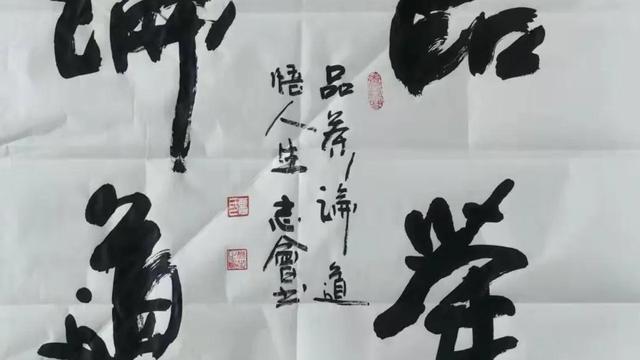 品茶
論道
品茶論道
悟人生 志會书